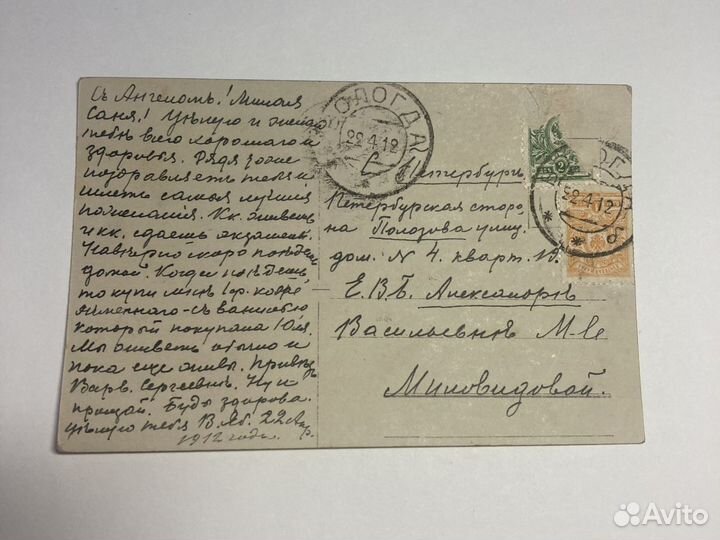 Съ Ангеломъ! Милая
Саня! Цѣлую и желаю
тебѣ всего хорошаго и
здоровья. Дядя тоже
поздравляетъ тебя и
шлетъ самыя лучшія
пожеланія. Кк. живешь
и кк. сдаешь экзамены.
Навѣрно скоро поѣдешь
домой. Когда поѣдешь,
то купи мнѣ 1ф. кофе
жженнаго съ ванилью
который покупала Юля.
Мы живемъ обычно и
пока еще живы. Привѣтъ
Варв. Сергеевнѣ. Ну и
прощай. Будь здорова.
цѣлую тебя В. Яб. 22 Апр.
1912 года.
ВОЛОГДА
22.4.12
22.4.12
Петербургъ
Петербурская сторо-
на Полозова улиц.
дом. N 4. кварт. 19.
Е.В.Б. Александрѣ
Васильевнѣ М-lle
Миловидовой.
Avito